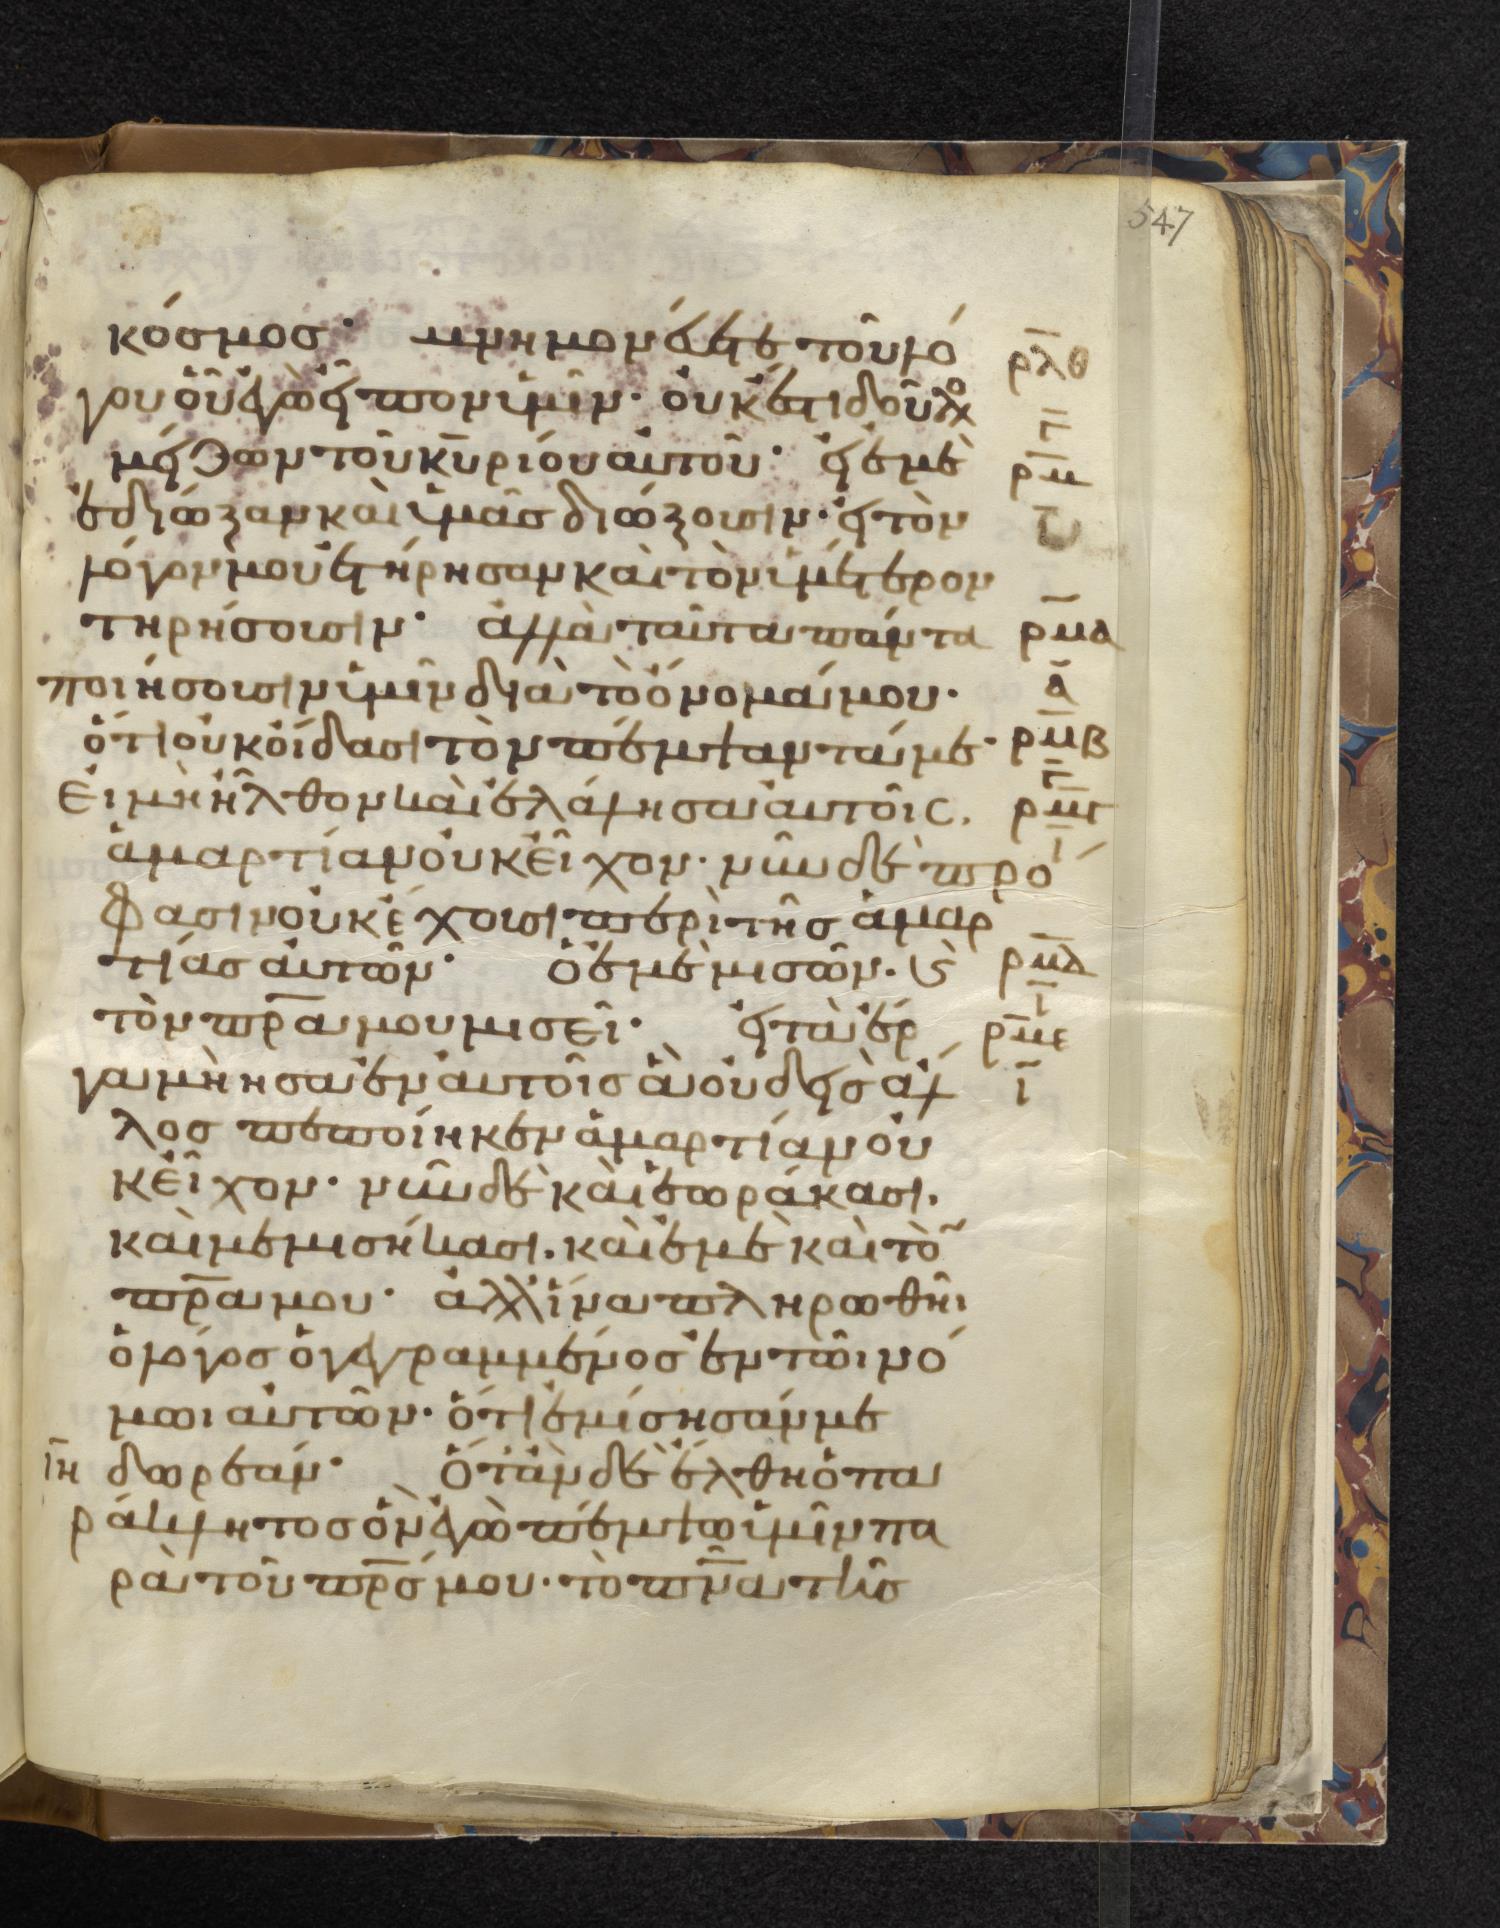 547
κόσμος· μνημονεύετε τοῦ λό ρλθ
γου οὗ ἐγὼ εἶπον ὑμῖν· οὐκ ἔστι δοῦλο γ
μείζων τοῦ κυρίου αὐτοῦ· εἰ ἐμὲ ρμ
ἐδίωξαν καὶ ὑμᾶς διώξουσιν· εἰ τὸν
λόγον μου ἐτήρησαν καὶ τὸν ὑμέτερον
τηρήσουσιν· ἀλλὰ ταῦτα πάντα ρμα
ποιήσουσιν ὑμῖν διὰ τὸ ὄνομά μου· α
ὅτι οὐκ οἴδασι τὸν πέμψαντά με· ρμβ
γ
Εἰ μὴ ἦλθον καὶ ἐλάλησα αὐτοῖς. ρμγ
ἁμαρτίαν οὐκ εἶχον· νῦν δὲ πρό ι
φασιν οὐκ έχουσι περὶ τῆς ἁμαρ
τίας αὐτῶν· Ὁ ἐμὲ μισῶν. ϛ ρμδ
ι
τὸν πρα μου μισεῖ· εἰ τὰ ἔρ ρμε
γα μὴ ησα ἐν αὐτοῖς ἃ οὐδεὶς ἄλ ι
λος πεποίηκεν ἁμαρτίαν οὐ
κ εἶχον· νῦν δὲ καὶ ἑωράκασι.
καὶ μεμισήκασι. καὶ ἐμὲ καὶ τὸ
πρα μου· ἀλλ ἵνα πληρωθῆι
ὁ λόγος ὁ γεγραμμένος ἐν τῶι νό
μωι αὐτῶν· ὅτι ἐμίσησάν με
ιη δωρεάν· Ὅταν δὲ ἔλθη ὁ πα
ράκλητος ὃν ἐγὼ πέμψω ὑμῖν πα
ρὰ τοῦ πρς μου· τὸ πνα τῆς